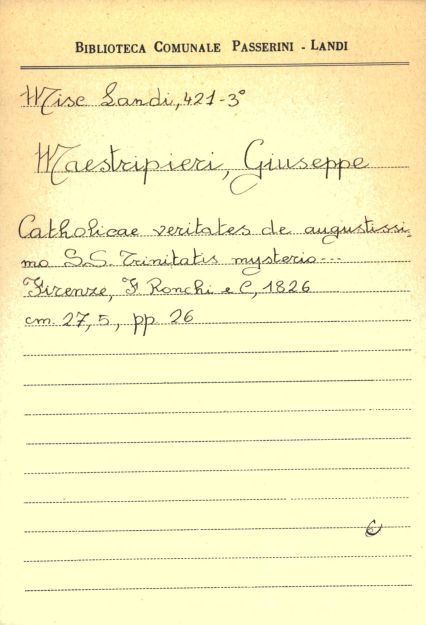 BIBLIOTECA COMUNALE PASSERINI - LANDI
Misc Landi, 421-3°
Maestripieri, Giuseppe
Catholicae veritates de augustissi=
mo S.S. Trinitatis mysterio---
Firenze, F. Ronchi e C, 1826
cm. 27,5, pp. 26